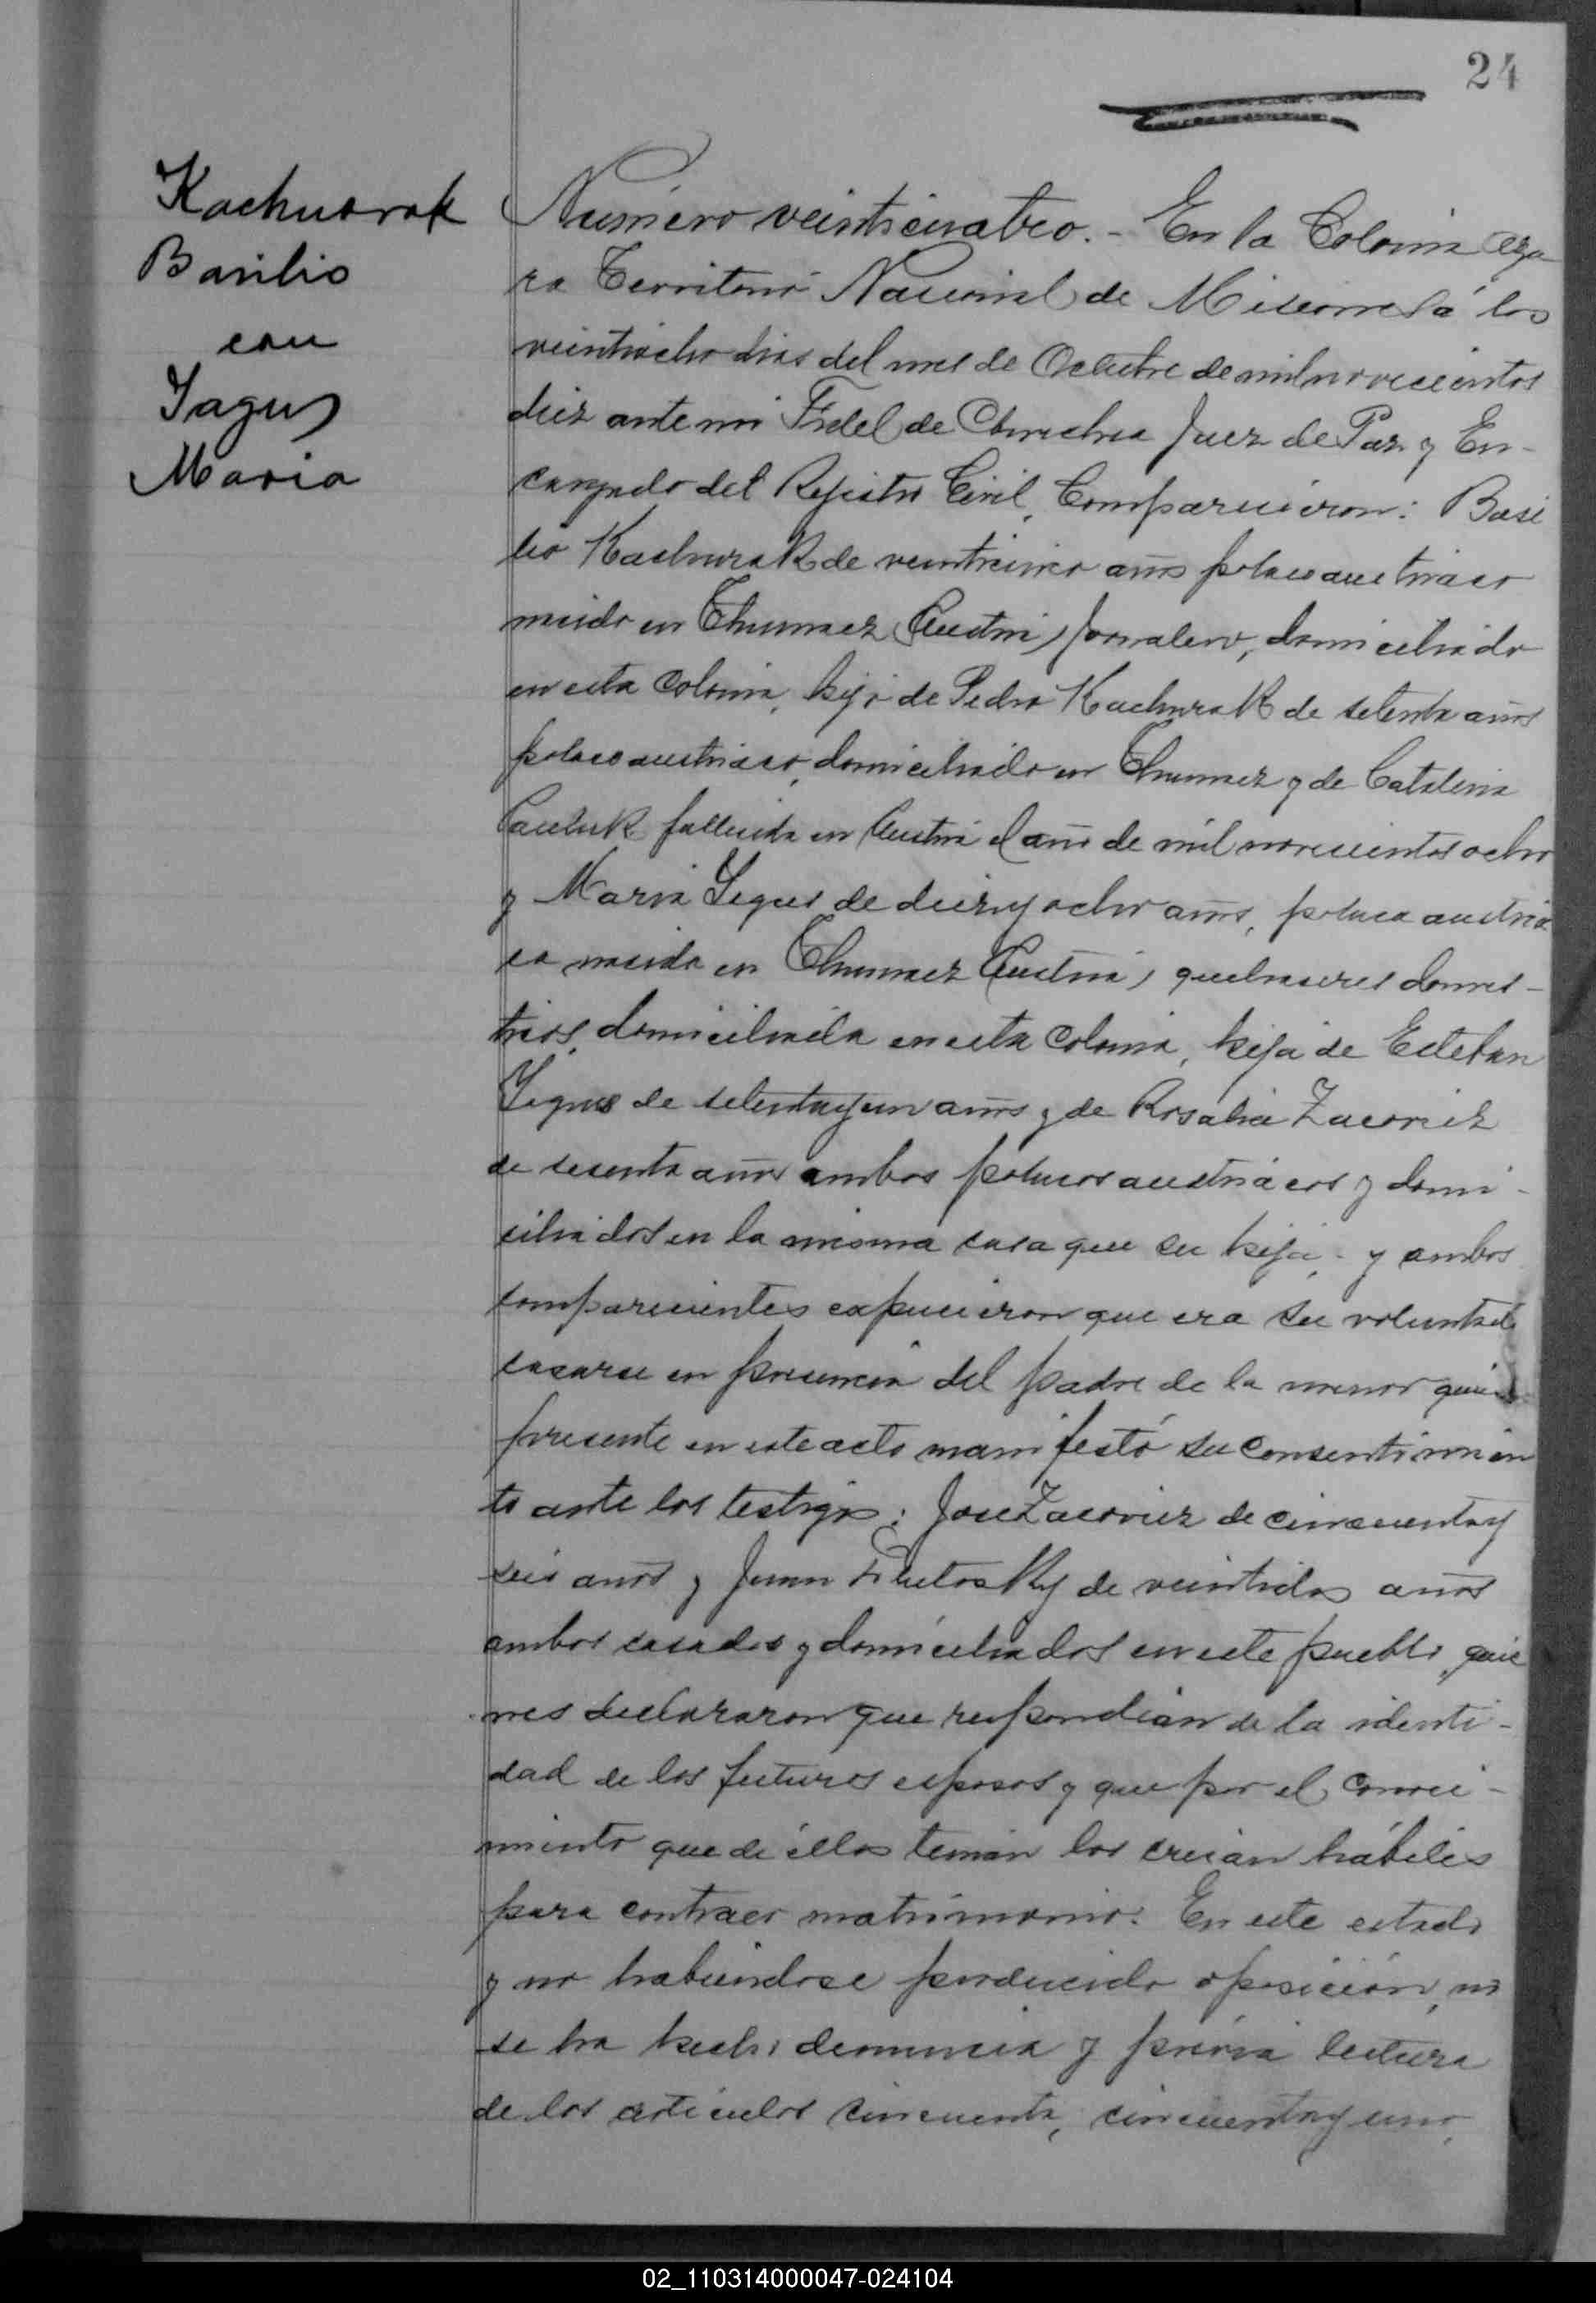 24
Kachurak
Basilio
con
Jagus
Maria
Número veinticuatro. - En la Colonia Aza
ra Territorio Nacional de Misiones á los
veintiocho dias del mes de Octubre de mil novecientos
diez ante mi Fidel de Juez de Paz y En-
cargado del Registro Civil, Comparecieron: Basi
lio Kachurak de veinticinco años polaco austriaco
nacido en Thumacz (Austria) jornalero, domiciliado
en esta Colonia, hijo de Pedro Kachurak de setenta años
polaco austriaco, domiciliado en Thumacz y de Catalina
fallecida en Austria el año de mil novecientos ocho
y Maria Jagus de diez y ocho años, polaca austria
ca nacida en Thumacz (Austria) quehaceres domes-
ticos, domiciliada en esta Colonia, hija de Esteban
Jagus de setenta y un años y de Rosalia Zacoviez
de sesenta años ambos polacos austriacos y domi-
ciliados en la misma casa que su hija - y ambos
comparecientes expusieron que era su voluntad
casarse en presencia del padre de la menor quien
presente en este acto manifestó su consentimien
to ante los testigos: José Zacoviez de cincuenta y
seis años y Juan de veintidos años
ambos casados y domiciliados en este pueblo, quie
nes declararon que respondian de la identi-
dad de los futuros esposos y que por el conoci-
miento que de éllos tenian los creian hábiles
para contraer matrimonio. En este estado
y no habiendose producido oposición, ni
se ha hecho denuncia y prévia lectura
de los articulos cincuenta, cincuenta y uno,
02_110314000047-024104